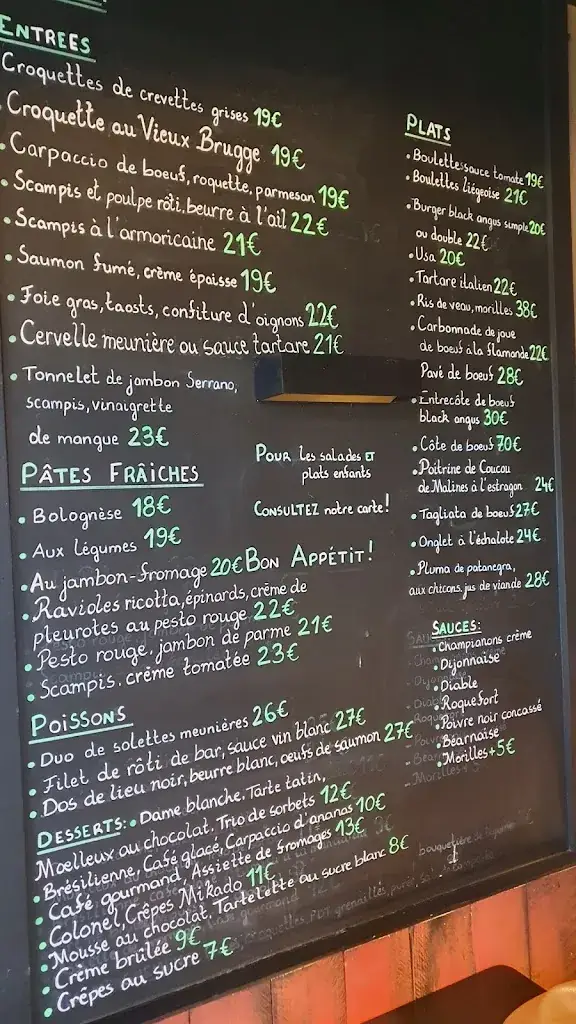 ENTREES
Croquettes de crevettes grises 19€
Croquette au Vieux Brugge 19€
• Carpaccio de boeuf, roquette, parmesan 19€
• Scampis et poulpe rôti, beurre à l'ail 22€
• Scampis à l'armoricaine 21€
• Saumon fumé, crème épaisse 19€
• Foie gras, taosts, confiture d'oignons 22€
• Cervelle meunière ou sauce tartare 21€
• Tonnelet de jambon Serrano,
scampis, vinaigrette
de mangue 23€
PÂTES FRAÎCHES
• Bolognèse 18€
• Aux légumes 19€
• Au jambon-fromage 20€
• Ravioles ricotta, épinards, crème de
pleurotes au pesto rouge 22€
• Pesto rouge, jambon de parme 21€
• Scampis, crème tomatée 23€
POUR les salades ET
plats enfants
CONSULTEZ notre carte!
BON APPÉTIT!
POISSONS
• Duo de solettes meunières 26€
• Filet de rôti de bar, sauce vin blanc 27€
• Dos de lieu noir, beurre blanc, oeufs de saumon 27€
DESSERTS: • Dame blanche, Tarte tatin,
Moelleux au chocolat, Trio de sorbets 12€
• Brésilienne, Café glacé, Carpaccio d'ananas 10€
• Café gourmand, Assiette de fromages 13€
• Colonel, Crêpes Mikado 11€
• Mousse au chocolat, Tartelette au sucre blanc 8€
• Crème brûlée 9€
• Crêpes au sucre 7€
PLATS
• Boulettes sauce tomate 19€
• Boulettes liégeoise 21€
• Burger black angus simple 20€
ou double 22€
• Usa 20€
• Tartare italien 22€
• Ris de veau, morilles 38€
• Carbonnade de joue
de boeuf à la flamande 22€
Pavé de boeuf 28€
• Entrecôte de boeuf
black angus 30€
• Côte de boeuf 70€
• Poitrine de Coucou
de Malines à l'estragon 24€
• Tagliata de boeuf 27€
• Onglet à l'échalote 24€
• Pluma de patanegra,
aux chicons, jus de viande 28€
SAUCES:
• Champignons crème
• Dijonnaise
• Diable
• Roquefort
• Poivre noir concassé
• Béarnaise
• Morilles +5€